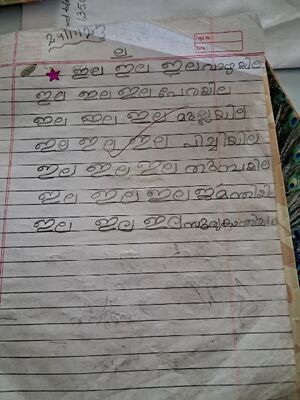 21/11/23
Page No :
Date :
ല
ഇല ഇല ഇല വാഴയില
ഇല ഇല ഇല പേരയില
ഇല ഇല ഇല മുല്ലയില
ഇല ഇല ഇല പിച്ചിയില
ഇല ഇല ഇല
ഇല ഇല ഇല ജമന്തിയില
ഇല ഇല ഇല സൂര്യകാന്തിയില